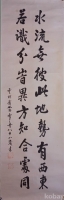 水流無彼此地勢有西東
若識分旹異方知合處同